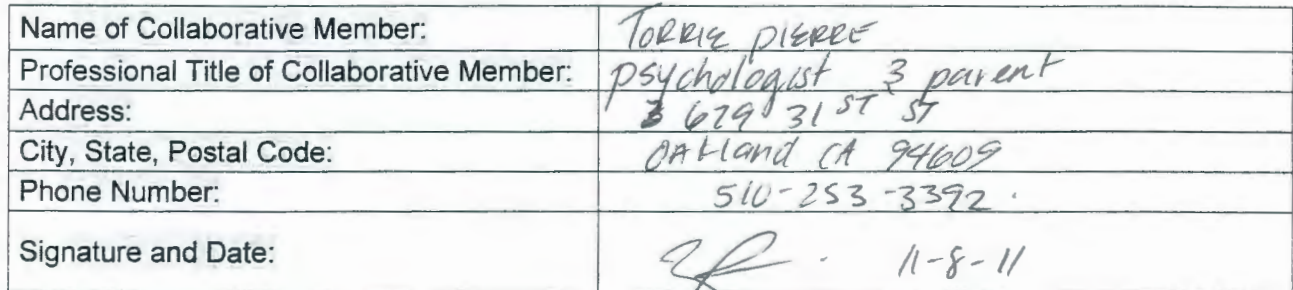 Name of Collaborative Member: TORRIE PIERRE
Professional Title of Collaborative Member: psychologist & parent
Address: 679 31ST ST
City, State, Postal Code: OAkland CA 94609
Phone Number: 510-253-3392.
Signature and Date: 11-8-11